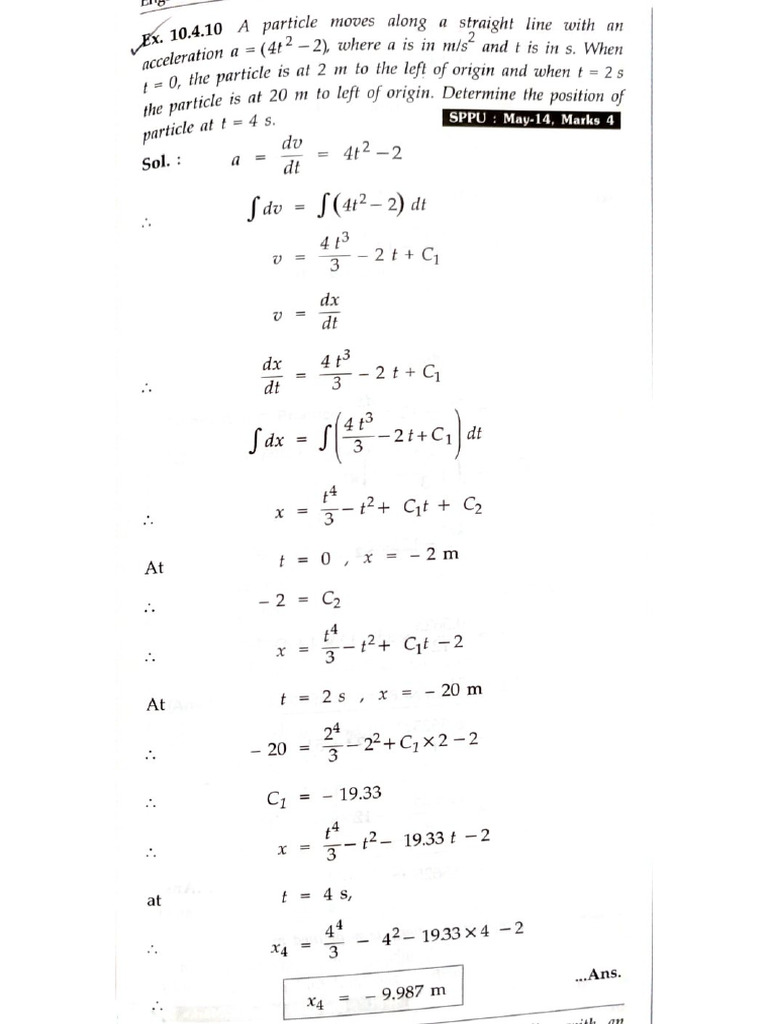 Ex. 10.4.10 A particle moves along a straight line with an
acceleration a = (4t² − 2), where a is in m/s² and t is in s. When
t = 0, the particle is at 2 m to the left of origin and when t = 2 s
the particle is at 20 m to left of origin. Determine the position of
particle at t = 4 s.
SPPU : May-14, Marks 4
Sol. : a = dv/dt = 4t² − 2
∴ ∫dv = ∫(4t² − 2) dt
v = 4 t³/3 − 2 t + C₁
v = dx/dt
∴ dx/dt = 4 t³/3 − 2 t + C₁
∫dx = ∫(4 t³/3 − 2 t + C₁) dt
∴ x = t⁴/3 − t² + C₁t + C₂
At t = 0 , x = − 2 m
∴ − 2 = C₂
∴ x = t⁴/3 − t² + C₁t − 2
At t = 2 s , x = − 20 m
∴ − 20 = 2⁴/3 − 2² + C₁ × 2 − 2
∴ C₁ = − 19.33
∴ x = t⁴/3 − t² − 19.33 t − 2
at t = 4 s,
∴ x₄ = 4⁴/3 − 4² − 19.33 × 4 − 2
∴ x₄ = − 9.987 m
...Ans.
with an